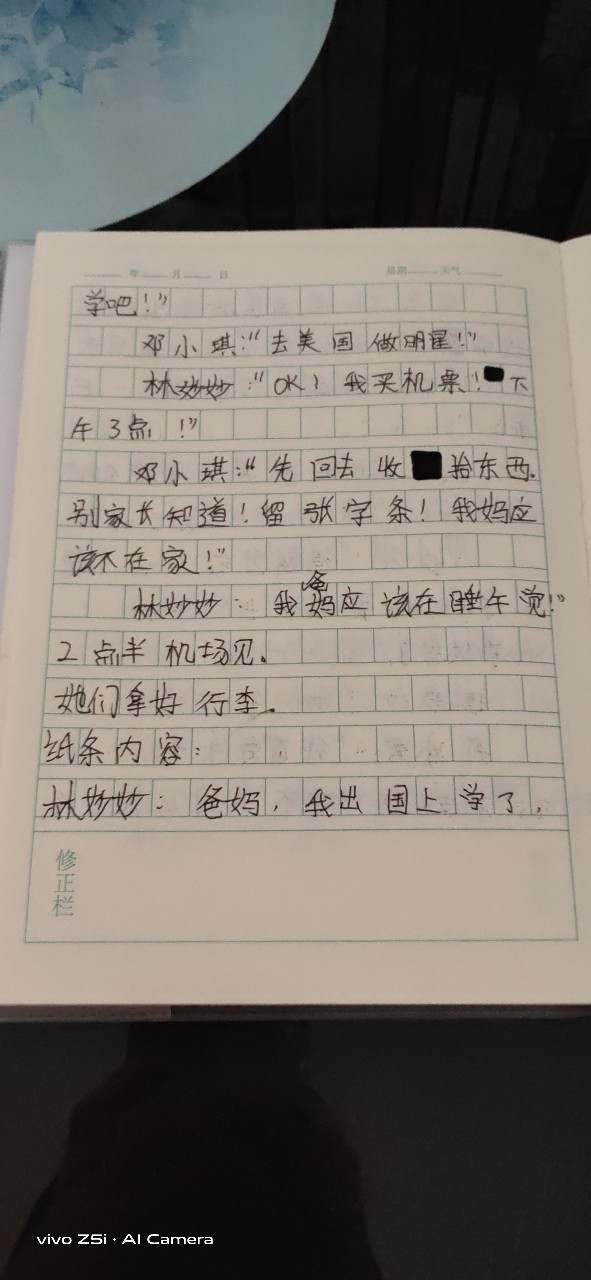 年 月 日 星期 天气
学吧！”
邓小琪：“去美国做明星！”
林妙妙：“OK！我买机票！下
午3点！”
邓小琪：“先回去收拾东西。
别家长知道！留张字条！我妈应
该不在家！”
林妙妙：我爸妈应该在睡午觉！”
2点半机场见。
她们拿好行李。
纸条内容：
林妙妙：爸妈，我出国上学了，
修正栏
vivo Z5i · AI Camera